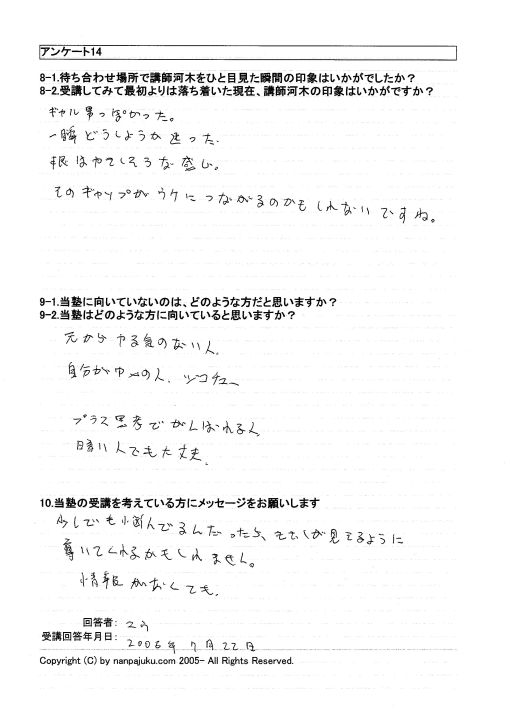 アンケート14
8-1.待ち合わせ場所で講師河木をひと目見た瞬間の印象はいかがでしたか？
8-2.受講してみて最初よりは落ち着いた現在、講師河木の印象はいかがですか？
ギャル男っぽかった。
一瞬どうしようか迷った。
根はやさしそうな感じ。
そのギャップがウケにつながるのかもしれないですね。
9-1.当塾に向いていないのは、どのような方だと思いますか？
9-2.当塾はどのような方に向いていると思いますか？
元からやる気のない人、
自分が中心の人、ジコチュー
プラス思考でがんばれる人
暗い人でも大丈夫、
10.当塾の受講を考えている方にメッセージをお願いします
少しでも悩んでるんだったら、が見てるように
導いてくれるかもしれません。
情報がなくても、
回答者:
受講回答年月日: 2006年7月22日
Copyright (C) by nanpajuku.com 2005- All Rights Reserved.